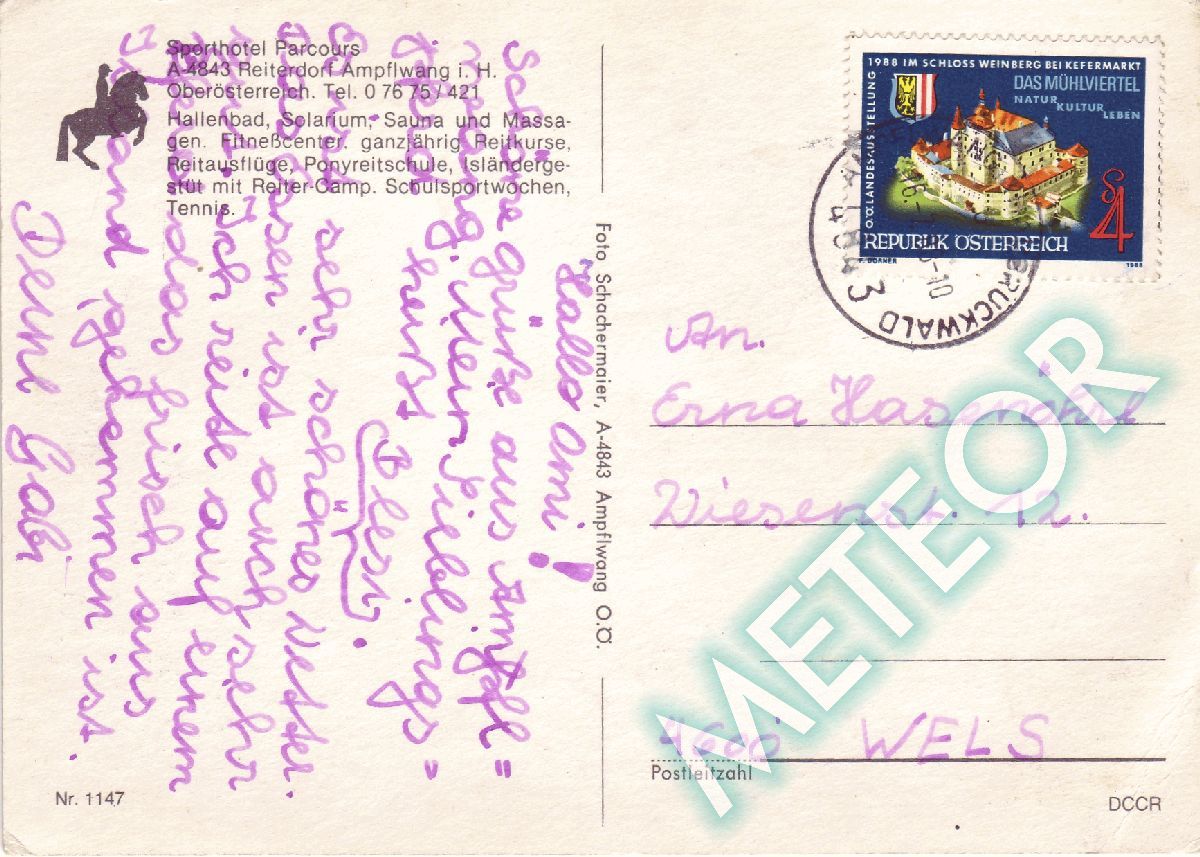 Sporthotel Parcours
A-4843 Reiterdorf Ampflwang i. H.
Oberösterreich. Tel. 0 76 75 / 421
Hallenbad, Solarium, Sauna und Massa-
gen. Fitneßcenter. ganzjährig Reitkurse,
Reitausflüge, Ponyreitschule, Isländerge-
stüt mit Reiter-Camp. Schulsportwochen,
Tennis.
Hallo Omi!
Schöne grüße aus Ampfl=
wang. Mein Lieblings=
heißt Blessy.
sehr schönes Wetter.
Essen ist auch sehr
Ich reite auf einem
das frisch aus
Island gekommen ist.
Deine Gabi
Nr. 1147
Foto Schachermaier, A-4843 Ampflwang O.Ö.
O.Ö. LANDESAUSSTELLUNG
1988 IM SCHLOSS WEINBERG BEI KEFERMARKT
DAS MÜHLVIERTEL
NATUR
KULTUR
LEBEN
S 4
REPUBLIK ÖSTERREICH
1988
4843
RÜCKWALD
An.
Erna Hasenöhrl
Wiesenst. 12.
4600 WELS
Postleitzahl
DCCR
METEOR